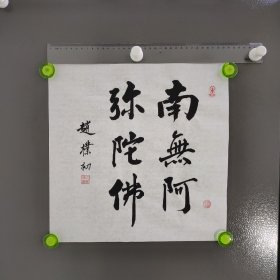 南無阿
弥陀佛
趙樸初